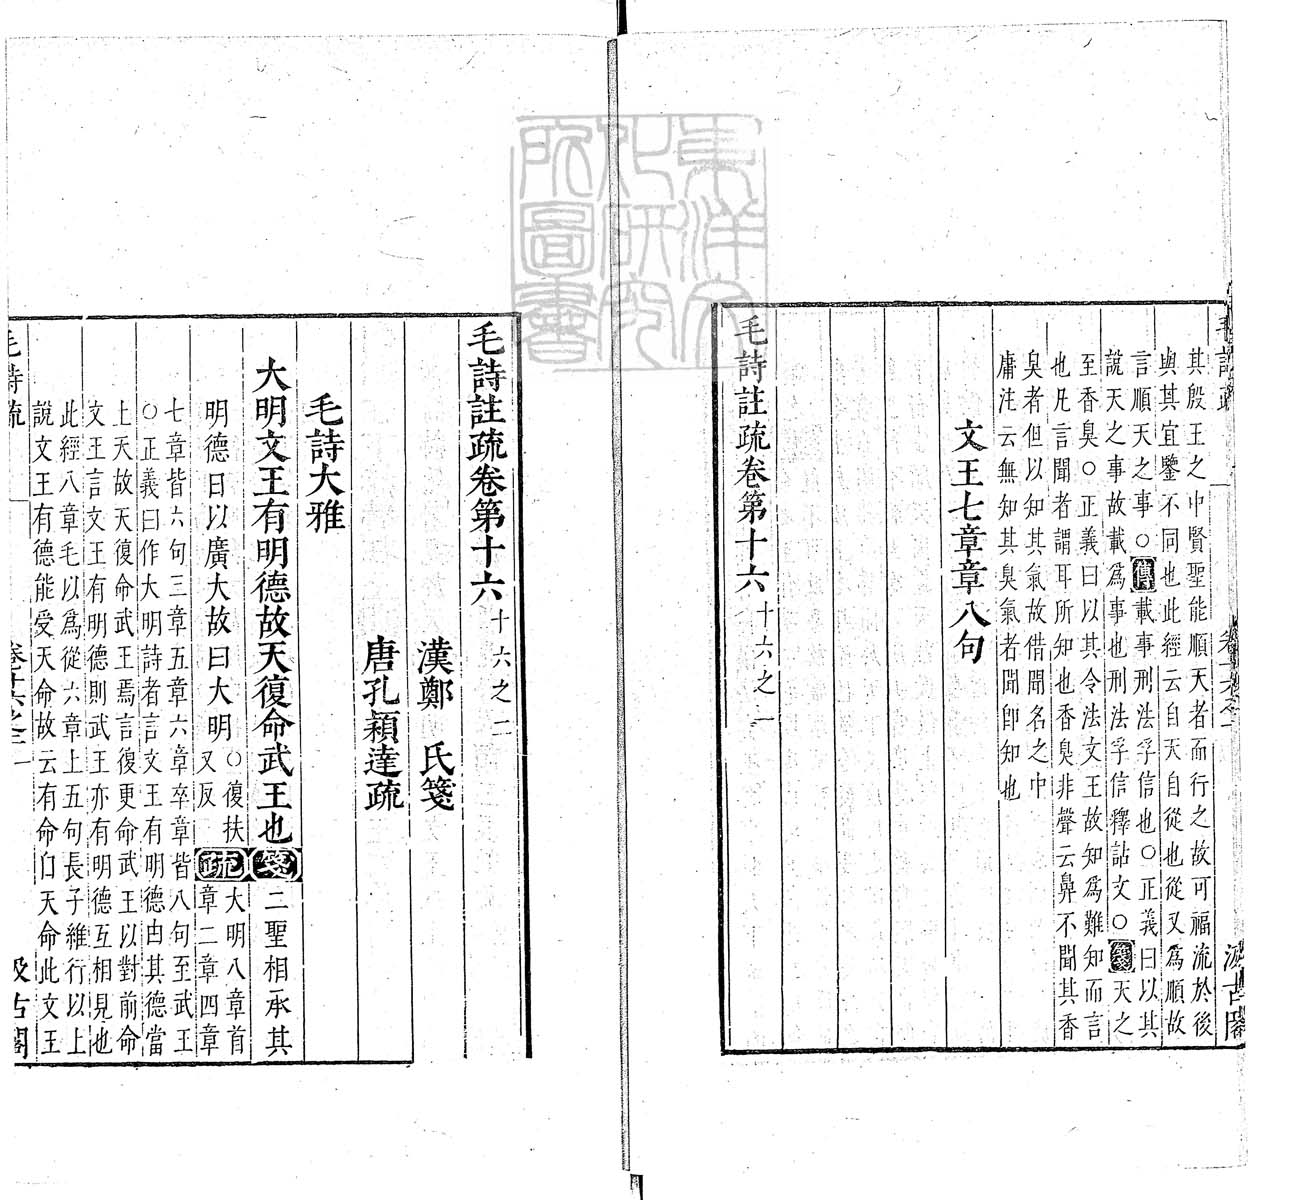 毛詩疏
卷十六之一
汲古閣
其殷王之中賢聖能順天者而行之故可福流於後
與其宜鑒不同也此經云自天自從也從又爲順故
言順天之事○傳載事刑法孚信也○正義曰以其
說天之事故載爲事也刑法孚信釋詁文○箋天之
至香臭○正義曰以其令法文王故知爲難知而言
也凡言聞者謂耳所知也香臭非聲云鼻不聞其香
臭者但以知其氣故借聞名之中
庸注云無知其臭氣者聞卽知也
文王七章章八句
毛詩註疏卷第十六 十六之一
東洋文化研究所圖書
毛詩註疏卷第十六 十六之二
漢鄭 氏箋
唐孔穎達疏
毛詩大雅
大明文王有明德故天復命武王也箋二聖相承其
明德日以廣大故曰大明○復扶
又反疏大明八章首
章二章四章
七章皆六句三章五章六章卒章皆八句至武王
○正義曰作大明詩者言文王有明德由其德當
上天故天復命武王焉言復更命武王以對前命
文王言文王有明德則武王亦有明德互相見也
此經八章毛以爲從六章上五句長子維行以上
說文王有德能受天命故云有命自天命此文王
毛詩疏
卷十六之二
汲古閣